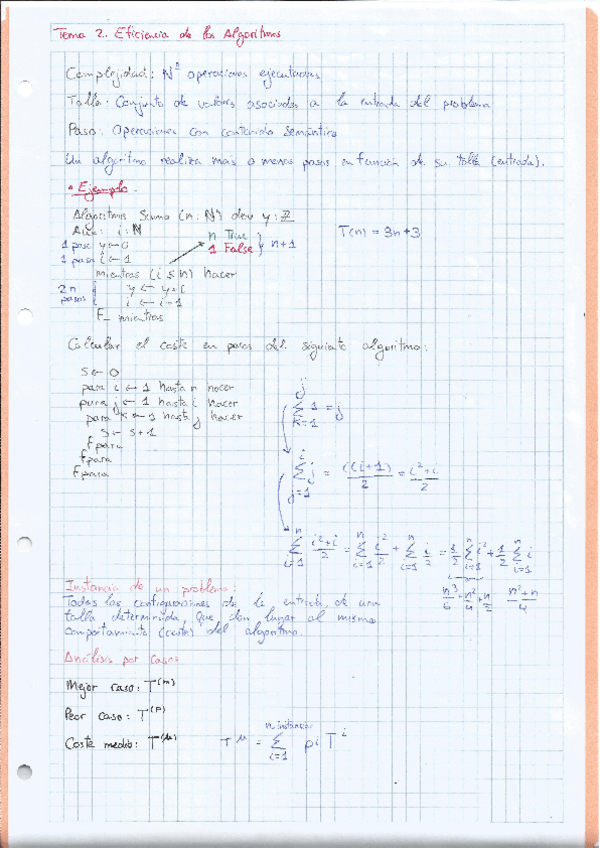 Tema 2. Eficiencia de los Algoritmos
Complejidad: Nº operaciones ejecutadas
Talla: Conjunto de valores asociados a la entrada del problema
Paso: Operaciones con contenido semántico
Un algoritmo realiza más o menos pasos en función de su talla (entrada).
• Ejemplo.
Algoritmo Suma (n: ℕ) dev y: ℤ
Aux: i: ℕ
n True
1 False } n+1
T(n) = 3n+3
1 paso y ← 0
1 paso i ← 1
mientras (i ≤ n) hacer
2n pasos { y ← y+i
i ← i+1
F_ mientras
Calcular el coste en pasos del siguiente algoritmo:
s ← 0
para i ← 1 hasta n hacer
para j ← 1 hasta i hacer
para k ← 1 hasta j hacer
s ← s+1
fpara
fpara
Fpara
∑_{k=1}^{j} 1 = j
∑_{j=1}^{i} j = (i(i+1))/2 = (i²+i)/2
∑_{i=1}^{n} (i²+i)/2 = ∑_{i=1}^{n} i²/2 + ∑_{i=1}^{n} i/2 = 1/2 ∑_{i=1}^{n} i² + 1/2 ∑_{i=1}^{n} i
n³/6 + n²/4 + n/2   (n²+n)/4
Instancia de un problema:
Todas las configuraciones de la entrada, de una
talla determinada, que dan lugar al mismo
comportamiento (coste) del algoritmo.
Análisis por casos
Mejor caso: T^(m)
Peor caso: T^(P)
Coste medio: T^(μ)   T^μ = ∑_{i=1}^{n instancias} pⁱ Tⁱ